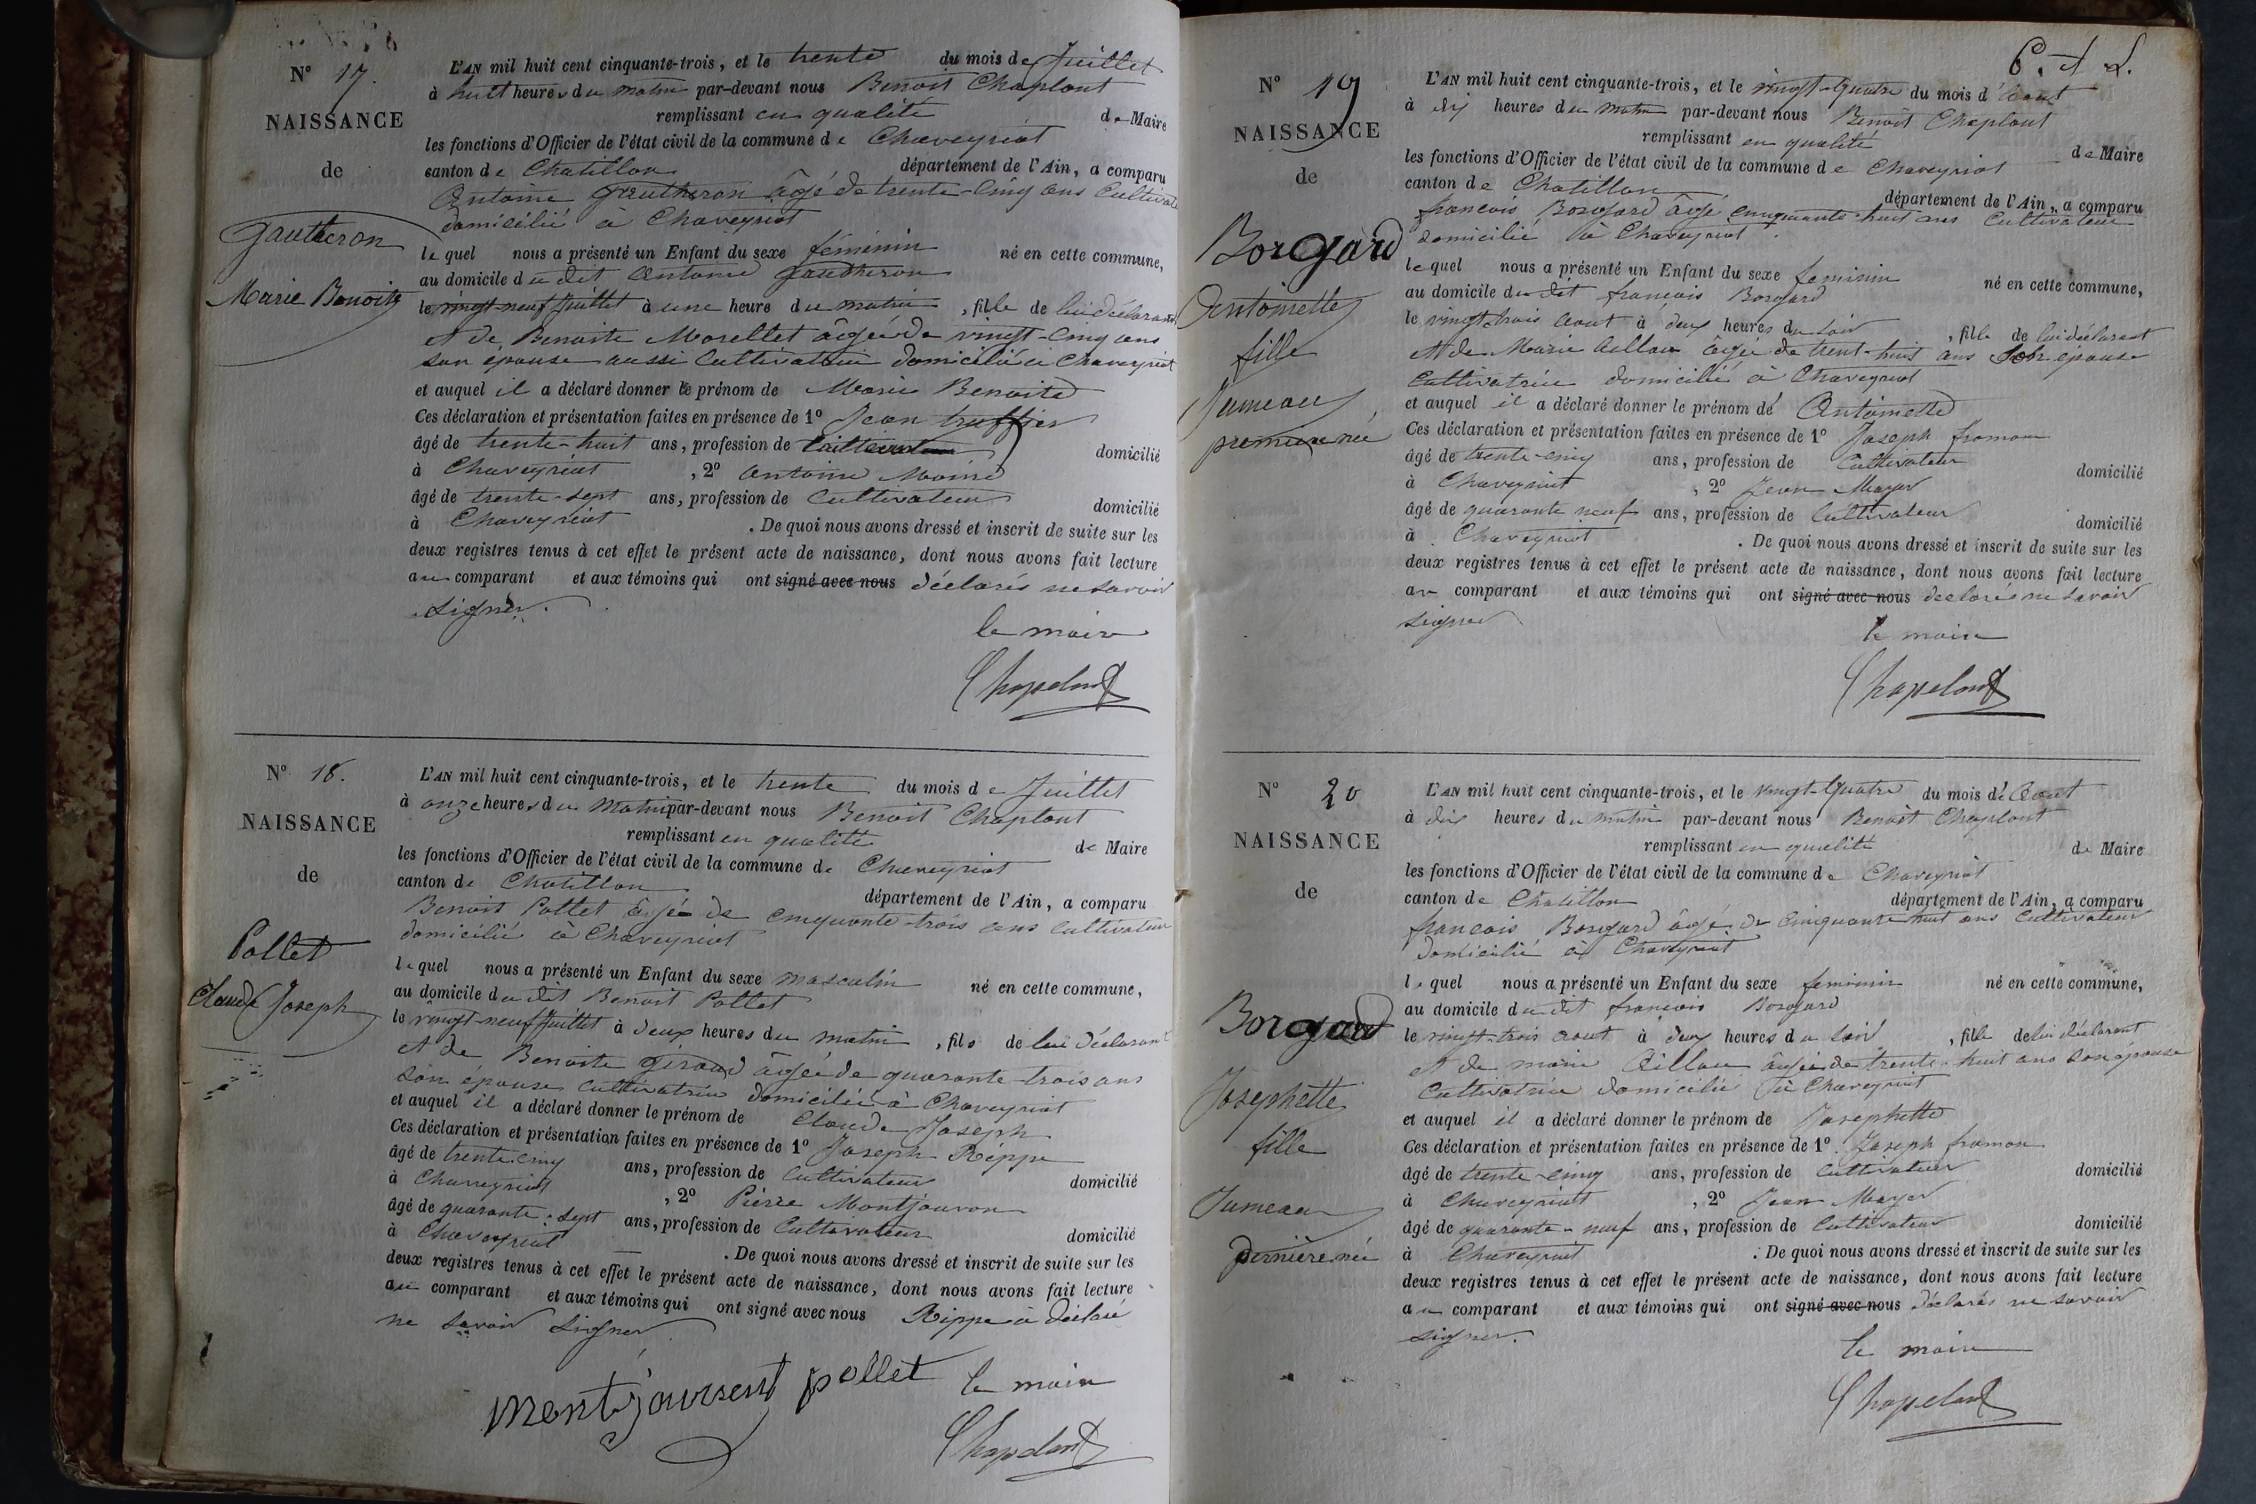 N° 17.
NAISSANCE
de
Gautheron
Marie Benoite
L'AN mil huit cent cinquante-trois, et le trente du mois de Juillet
à huit heures du matin par-devant nous Benoit Chaplout
remplissant en qualité de Maire
les fonctions d'Officier de l'état civil de la commune de Chaveyriat
canton de Chatillon département de l'Ain, a comparu
Antoine Gautheron âgé de trente-cinq ans Cultivateur
domicilié à Chaveyriat
lequel nous a présenté un Enfant du sexe féminin né en cette commune,
au domicile du dit Antoine Gautheron
le vingt-neuf Juillet à une heure du matin, fille de lui déclarant
et de Benoite Morellet âgée de vingt-cinq ans
son épouse aussi Cultivatrice domicilié à Chaveyriat
et auquel il a déclaré donner le prénom de Marie Benoite
Ces déclaration et présentation faites en présence de 1° Jean truffier
âgé de trente-huit ans, profession de Cultivateur domicilié
à Chaveyriat, 2° Antoine Moine
âgé de trente-sept ans, profession de Cultivateur domicilié
à Chaveyriat. De quoi nous avons dressé et inscrit de suite sur les
deux registres tenus à cet effet le présent acte de naissance, dont nous avons fait lecture
au comparant et aux témoins qui ont signé avec nous déclarés ne savoir
signer.
le maire
Chapelout
N° 18.
NAISSANCE
de
Pollet
Claude Joseph
L'AN mil huit cent cinquante-trois, et le trente du mois de Juillet
à onze heures du Matin par-devant nous Benoit Chaplout
remplissant en qualité de Maire
les fonctions d'Officier de l'état civil de la commune de Chaveyriat
canton de Chatillon département de l'Ain, a comparu
Benoit Pollet âgé de cinquante-trois ans Cultivateur
domicilié à Chaveyriat
lequel nous a présenté un Enfant du sexe masculin né en cette commune,
au domicile du dit Benoit Pollet
le vingt-neuf Juillet à deux heures du matin, fils de lui déclarant
et de Benoite Géraud âgée de quarante-trois ans
son épouse cultivatrice domiciliée à Chaveyriat
et auquel il a déclaré donner le prénom de Claude Joseph
Ces déclaration et présentation faites en présence de 1° Joseph Rippe
âgé de trente cinq ans, profession de Cultivateur domicilié
à Chaveyriat, 2° Pierre Montjouvon
âgé de quarante-sept ans, profession de Cultivateur domicilié
à Chaveyriat. De quoi nous avons dressé et inscrit de suite sur les
deux registres tenus à cet effet le présent acte de naissance, dont nous avons fait lecture
au comparant et aux témoins qui ont signé avec nous Rippe a déclaré
ne savoir signer
montjouvent pollet le maire
Chapelout
N° 19
NAISSANCE
de
Borgard
Antoinette
fille
Jumeau
première née
L'AN mil huit cent cinquante-trois, et le vingt-quatre du mois d'Aout
à dix heures du matin par-devant nous Benoit Chaplout
remplissant en qualité de Maire
les fonctions d'Officier de l'état civil de la commune de Chaveyriat
canton de Chatillon département de l'Ain, a comparu
francois Borgard âgé cinquante-huit ans Cultivateur
domicilié à Chaveyriat
lequel nous a présenté un Enfant du sexe feminin né en cette commune,
au domicile du dit francois Borgard
le vingt-trois Aout à deux heures du soir, fille de lui déclarant
et de Marie Aillou âgée de trent-huit ans Son epouse
Cultivatrice domicilié à Chaveyriat
et auquel il a déclaré donner le prénom de Antoinette
Ces déclaration et présentation faites en présence de 1° Joseph fromon
âgé de trente-cinq ans, profession de Cultivateur domicilié
à Chaveyriat, 2° Jean Mayer
âgé de quarante neuf ans, profession de Cultivateur domicilié
à Chaveyriat. De quoi nous avons dressé et inscrit de suite sur les
deux registres tenus à cet effet le présent acte de naissance, dont nous avons fait lecture
au comparant et aux témoins qui ont signé avec nous declarés ne savoir
signer
le maire
Chapelout
N° 20
NAISSANCE
de
Borgard
Josephette
fille
Jumeau
dernière née
L'AN mil huit cent cinquante-trois, et le vingt-quatre du mois d'Aout
à dix heures du matin par-devant nous Benoit Chaplout
remplissant en qualité de Maire
les fonctions d'Officier de l'état civil de la commune de Chaveyriat
canton de Chatillon département de l'Ain, a comparu
francois Borgard âgé de cinquante huit ans Cultivateur
domicilié à Chaveyriat
lequel nous a présenté un Enfant du sexe feminin né en cette commune,
au domicile du dit francois Borgard
le vingt-trois aout à deux heures du soir, fille de lui déclarant
et de marie Aillou âgée de trente-huit ans son épouse
Cultivatrice domicilié à Chaveyriat
et auquel il a déclaré donner le prénom de Josephette
Ces déclaration et présentation faites en présence de 1° Joseph fromon
âgé de trente-cinq ans, profession de Cultivateur domicilié
à Chaveyriat, 2° Jean Mayer
âgé de quarante-neuf ans, profession de Cultivateur domicilié
à Chaveyriat. De quoi nous avons dressé et inscrit de suite sur les
deux registres tenus à cet effet le présent acte de naissance, dont nous avons fait lecture
au comparant et aux témoins qui ont signé avec nous déclarés ne savoir
signer.
le maire
Chapelout